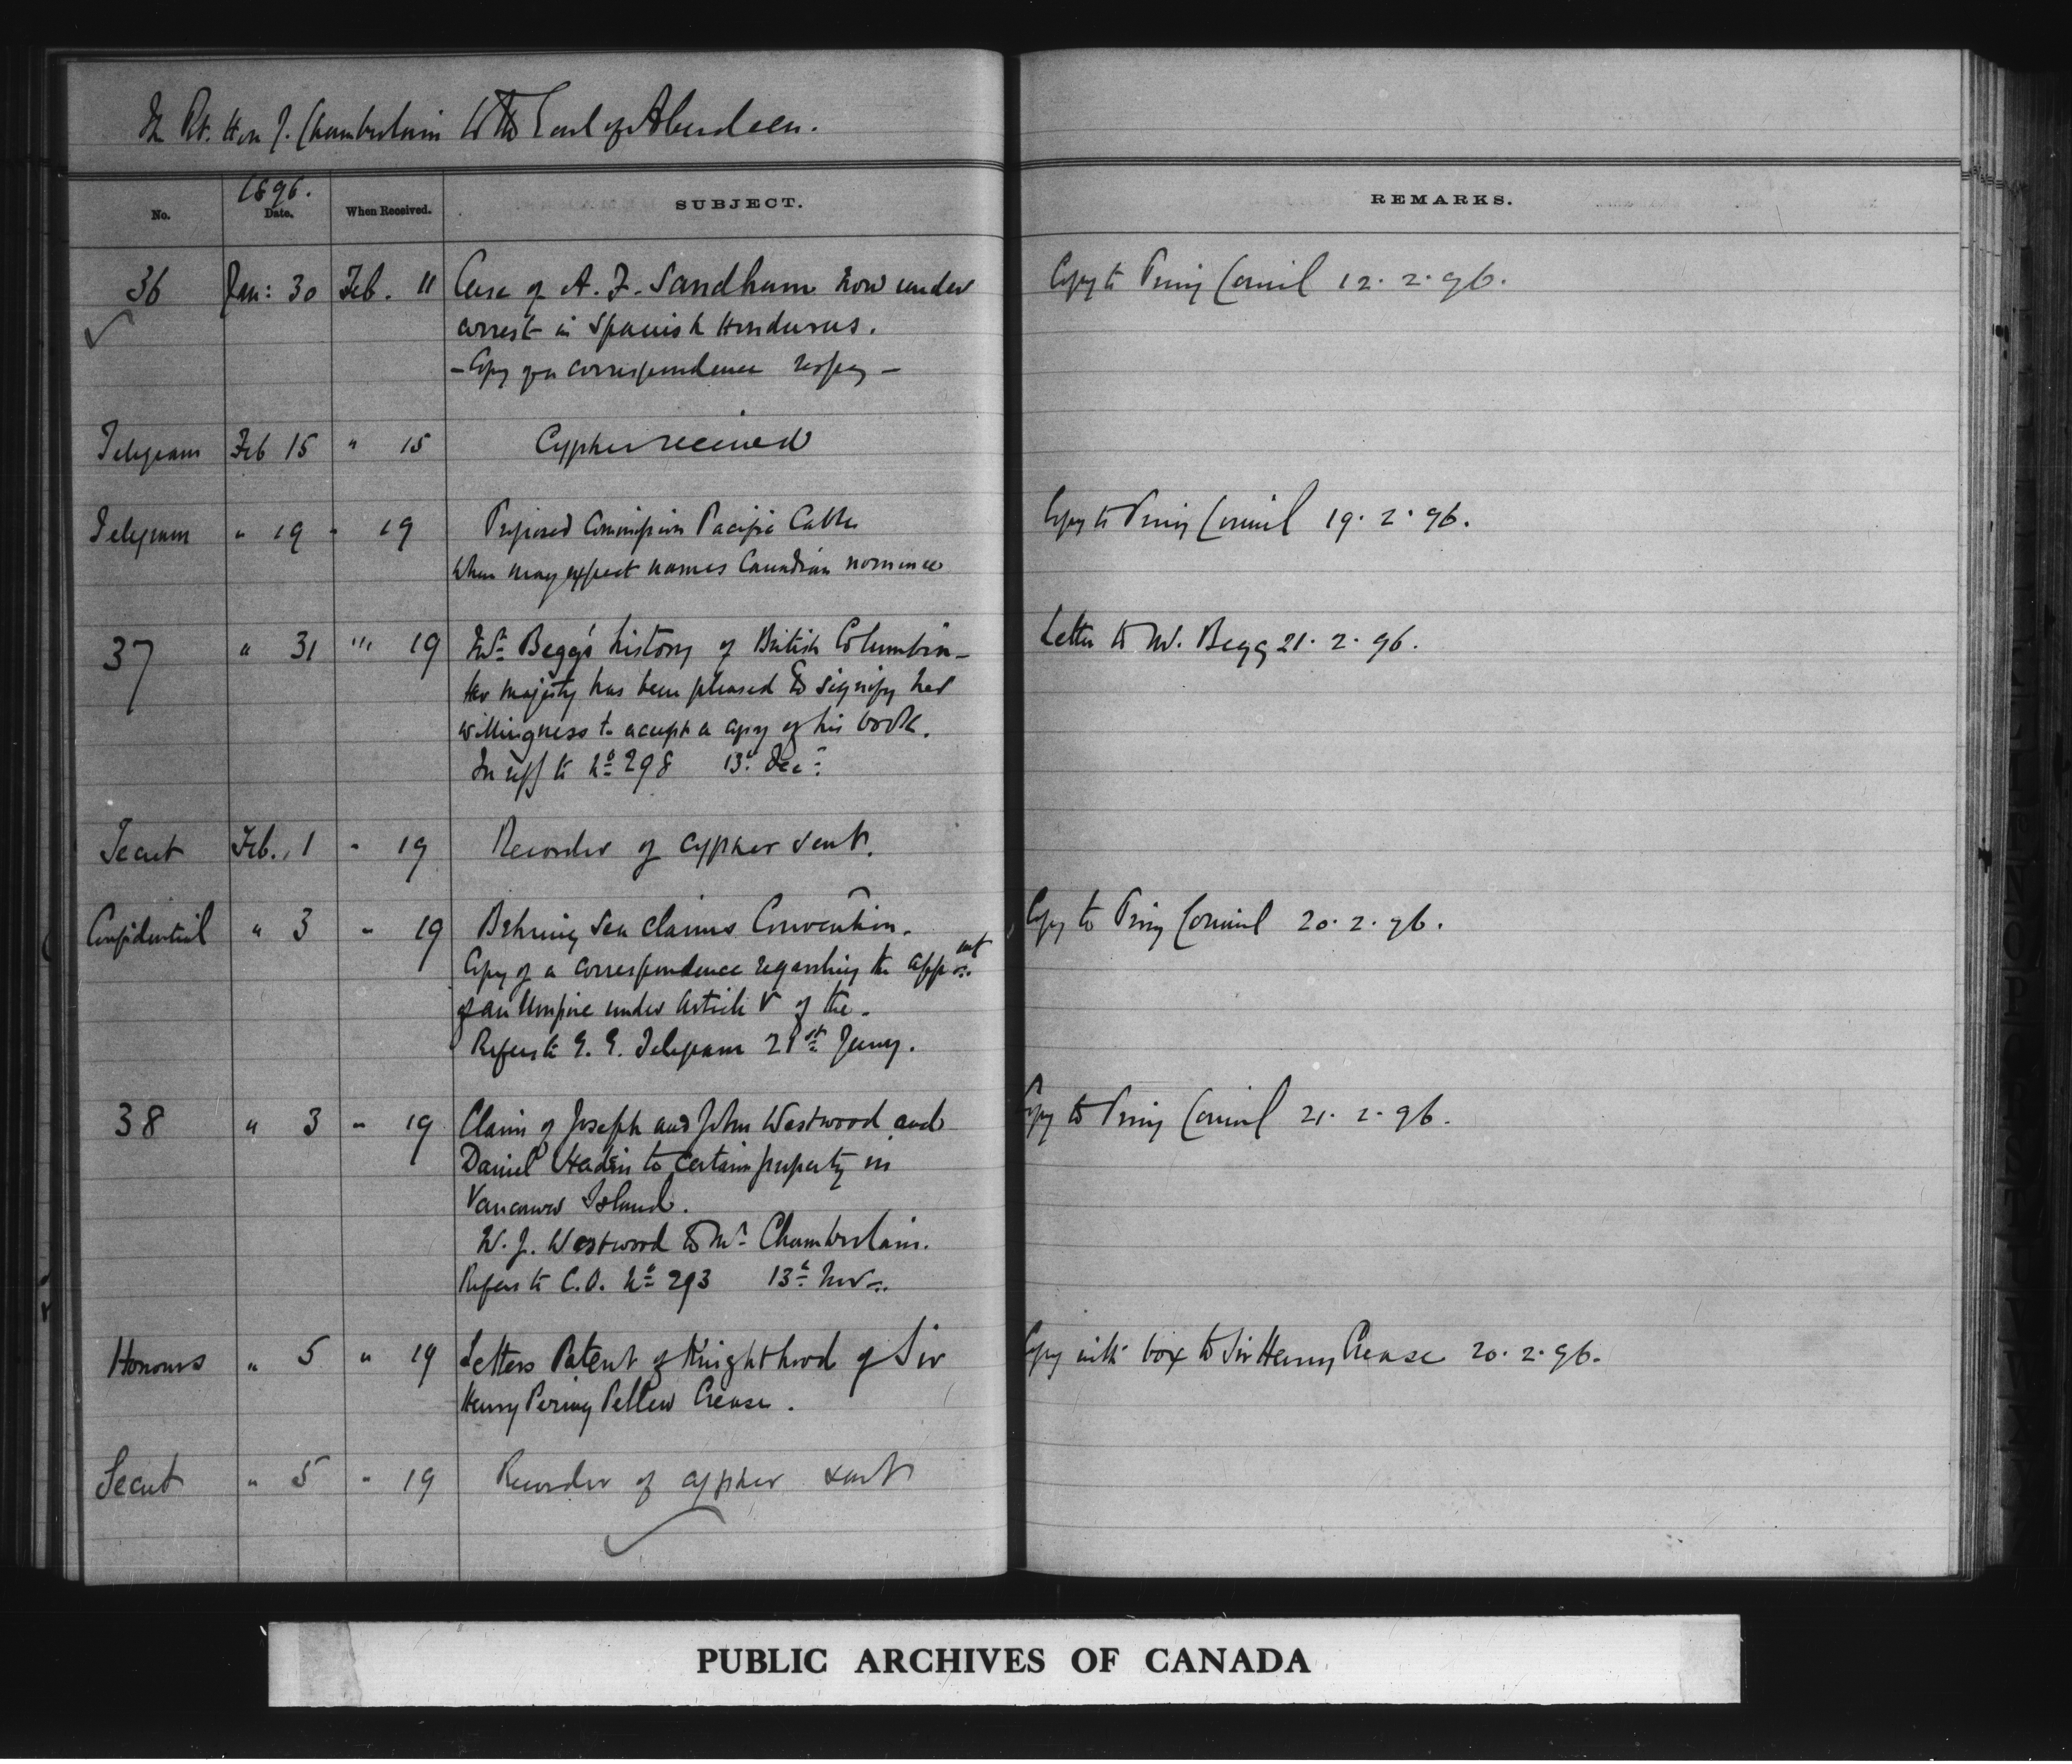 The Rt. Hon J. Chamberlain to the Earl of Aberdeen.
1896.
No. Date. When Received. SUBJECT. REMARKS.
36 Jan: 30 Feb. 11 Case of A. F. Sandham now under Copy to Privy Council 12. 2. 96.
arrest in Spanish Honduras.
- Copy of a correspondence respg -
Telegram Feb 15 " 15 Cypher received
Telegram " 19 " 19 Proposed Commission Pacific Cable Copy to Privy Council 19. 2. 96.
When may expect names Canadian nominee
37 " 31 "" 19 Mr. Begg's history of British Columbia - Letter to Mr. Begg 21. 2. 96.
Her Majesty has been pleased to signify her
willingness to accept a copy of his book.
In reff to No 298 13th Decr.
Secret Feb. 1 " 19 Recorder of cypher sent.
Confidential " 3 " 19 Behring Sea Claims Convention. Copy to Privy Council 20. 2. 96.
Copy of a correspondence regarding the appmt
of an Umpire under Article V of the -
Refers to G. G. Telegram 21st Jany.
38 " 3 " 19 Claim of Joseph and John Westwood and Copy to Privy Council 21. 2. 96.
Daniel to certain property in
Vancouver Island.
W. J. Westwood to Mr. Chamberlain.
Refers to C.O. No 293 13th Nov.
Honours " 5 " 19 Letters Patent of Knighthood of Sir Copy with box to Sir Henry Crease 20. 2. 96.
Henry Pering Pellew Crease.
Secret " 5 " 19 Recorder of cypher sent
PUBLIC ARCHIVES OF CANADA